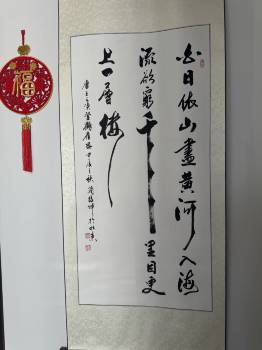 福
白日依山盡黄河入海
流欲窮千里目更
上一層樓
唐王之渙登鸛雀樓